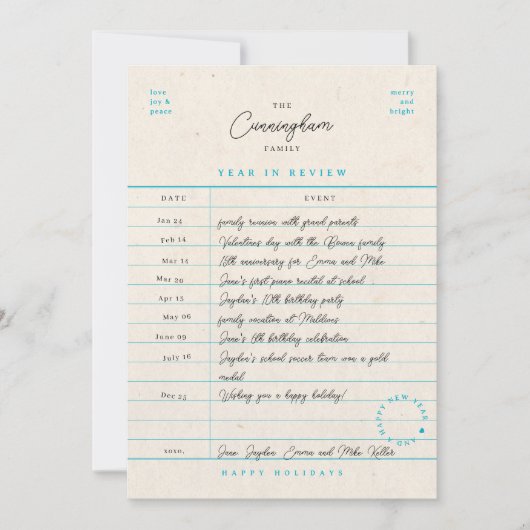 love
joy &
peace
merry
and
bright
THE
Cunningham
FAMILY
YEAR IN REVIEW
DATE EVENT
Jan 24 family reunion with grand parents
Feb 14 Valentines day with the Bowen family
Mar 14 15th anniversary for Emma and Mike
Mar 20 Jane's first piano recital at school
Apr 15 Jayden's 10th birthday party
May 06 family vacation at Maldives
June 09 Jane's 6th birthday celebration
July 16 Jayden's school soccer team won a gold
medal
Dec 25 Wishing you a happy holiday!
AND A HAPPY NEW YEAR
xoxo, Jane Jayden Emma and Mike Keller
HAPPY HOLIDAYS